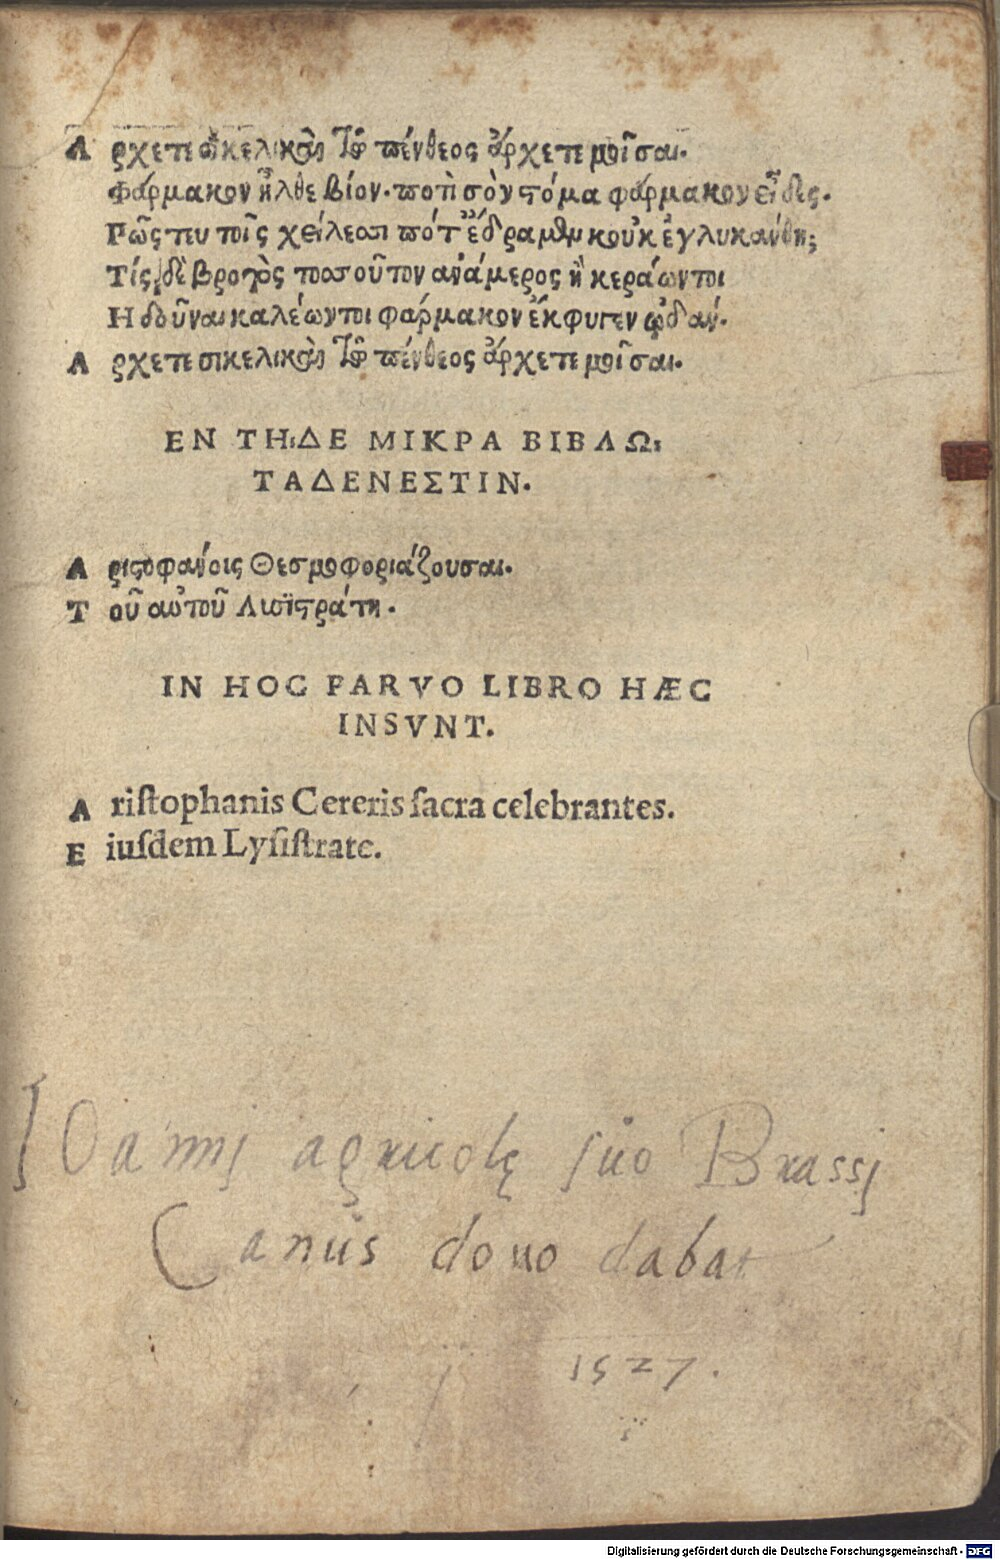 Αρχετε σικελικαὶ τῶ πένθεος ἄρχετε μοῖσαι.
Φάρμακον ἦλθε βίον. ποτὶ σὸν στόμα φάρμακον εἶδες.
Πῶς τευ τοῖς χείλεσσι πότ' ἔδραμεν κοὐκ ἐγλυκάνθη;
Τίς δὲ βροτὸς τοσοῦτον ἀνάμερος ἢ κεράωντοι
Η δοῦναι καλέωντοι φάρμακον ἔκφυγεν ᾠδάν.
Αρχετε σικελικαὶ τῶ πένθεος ἄρχετε μοῖσαι.
ΕΝ ΤΗιΔΕ ΜΙΚΡΑ ΒΙΒΛΩι
ΤΑΔΕΝΕΣΤΙΝ.
Αριστοφάνοις Θεσμοφοριάζουσαι.
Τοῦ αὐτοῦ Λισϊστράτη.
IN HOC PARVO LIBRO HÆC
INSVNT.
Ariſtophanis Cereris ſacra celebrantes.
Eiuſdem Lyſiſtrate.
IOannj agricolę ſuo Brassj
Canus dono dabat
1527.
Digitalisierung gefördert durch die Deutsche Forschungsgemeinschaft - DFG